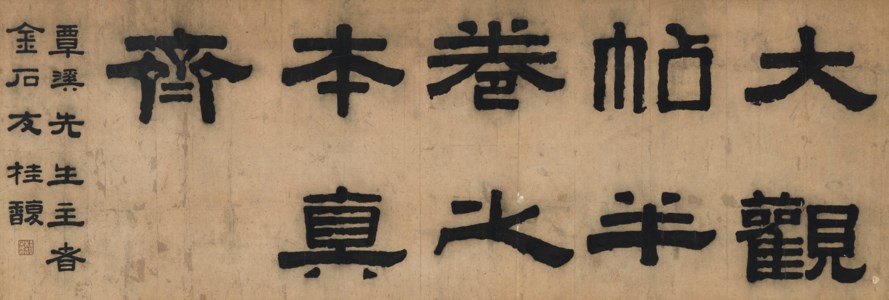 大觀
帖半
卷之
本真
齊
覃溪先生主者
金石友桂馥